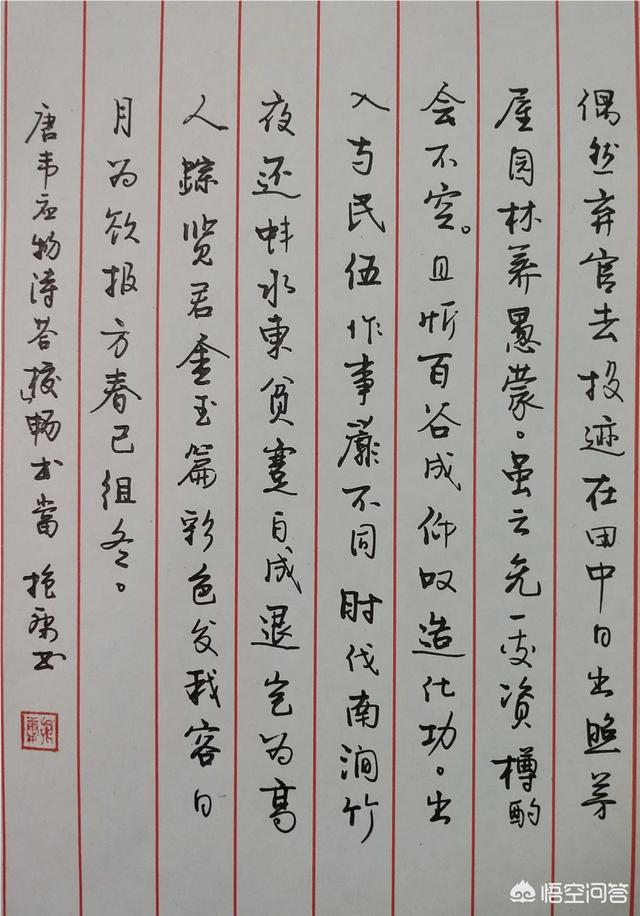 偶然弃官去投迹在田中日出照茅
屋园林养愚蒙。虽云无一资樽酌
会不空。且忻百谷成仰叹造化功。出
入与民伍作事靡不同时伐南涧竹
夜还沣水東贫蹇自成退岂为高
人踪览君金玉篇彩色发我容日
月为欲报方春已组冬。
唐韦应物诗答校畅书當 书
悟空问答